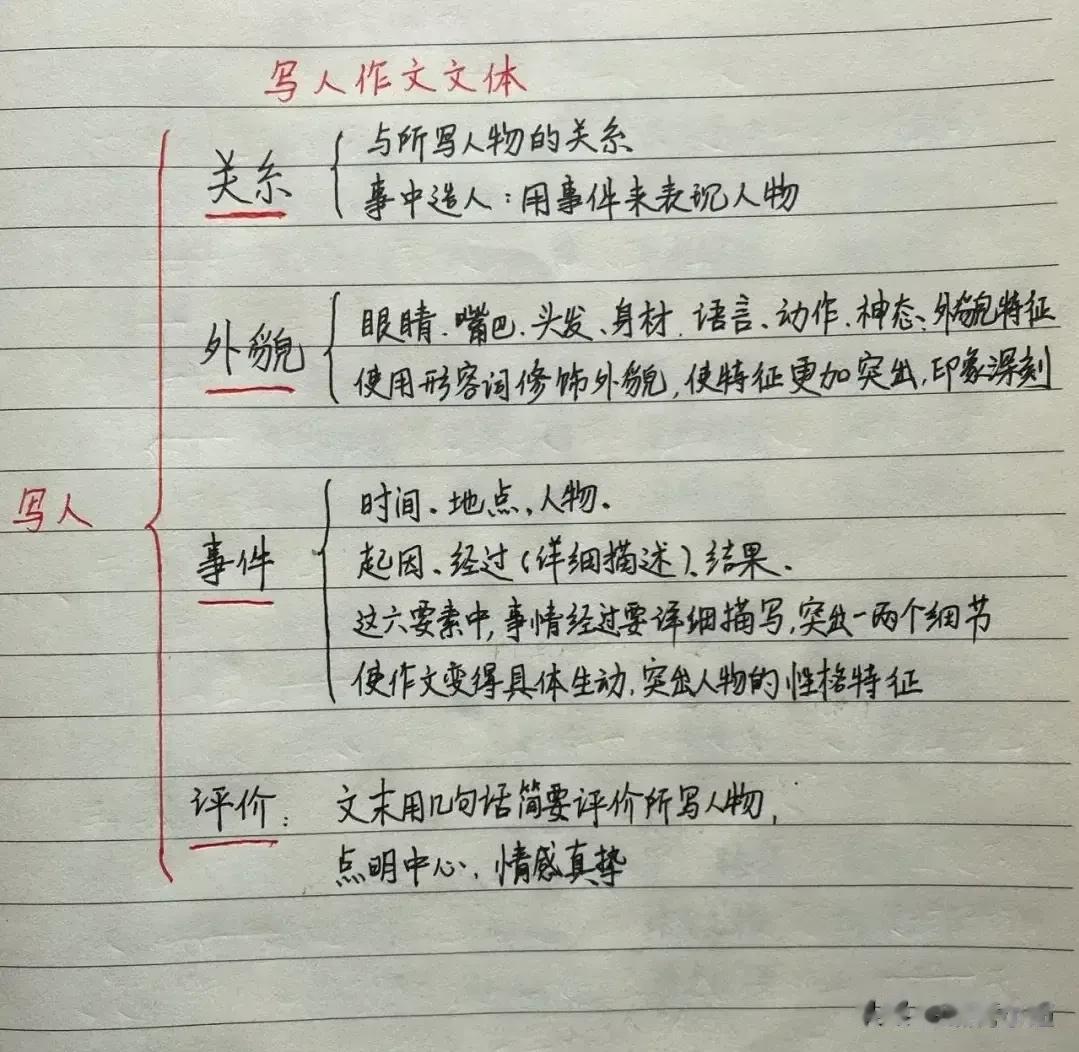 写人作文文体
关系
与所写人物的关系
事中造人：用事件来表现人物
外貌
眼睛、嘴巴、头发、身材、语言、动作、神态、外貌特征
使用形容词修饰外貌，使特征更加突出，印象深刻
写人
事件
时间、地点、人物、
起因、经过（详细描述）、结果、
这六要素中，事情经过要详细描写，突出一两个细节
使作文变得具体生动，突出人物的性格特征
评价：
文末用几句话简要评价所写人物，
点明中心、情感真挚